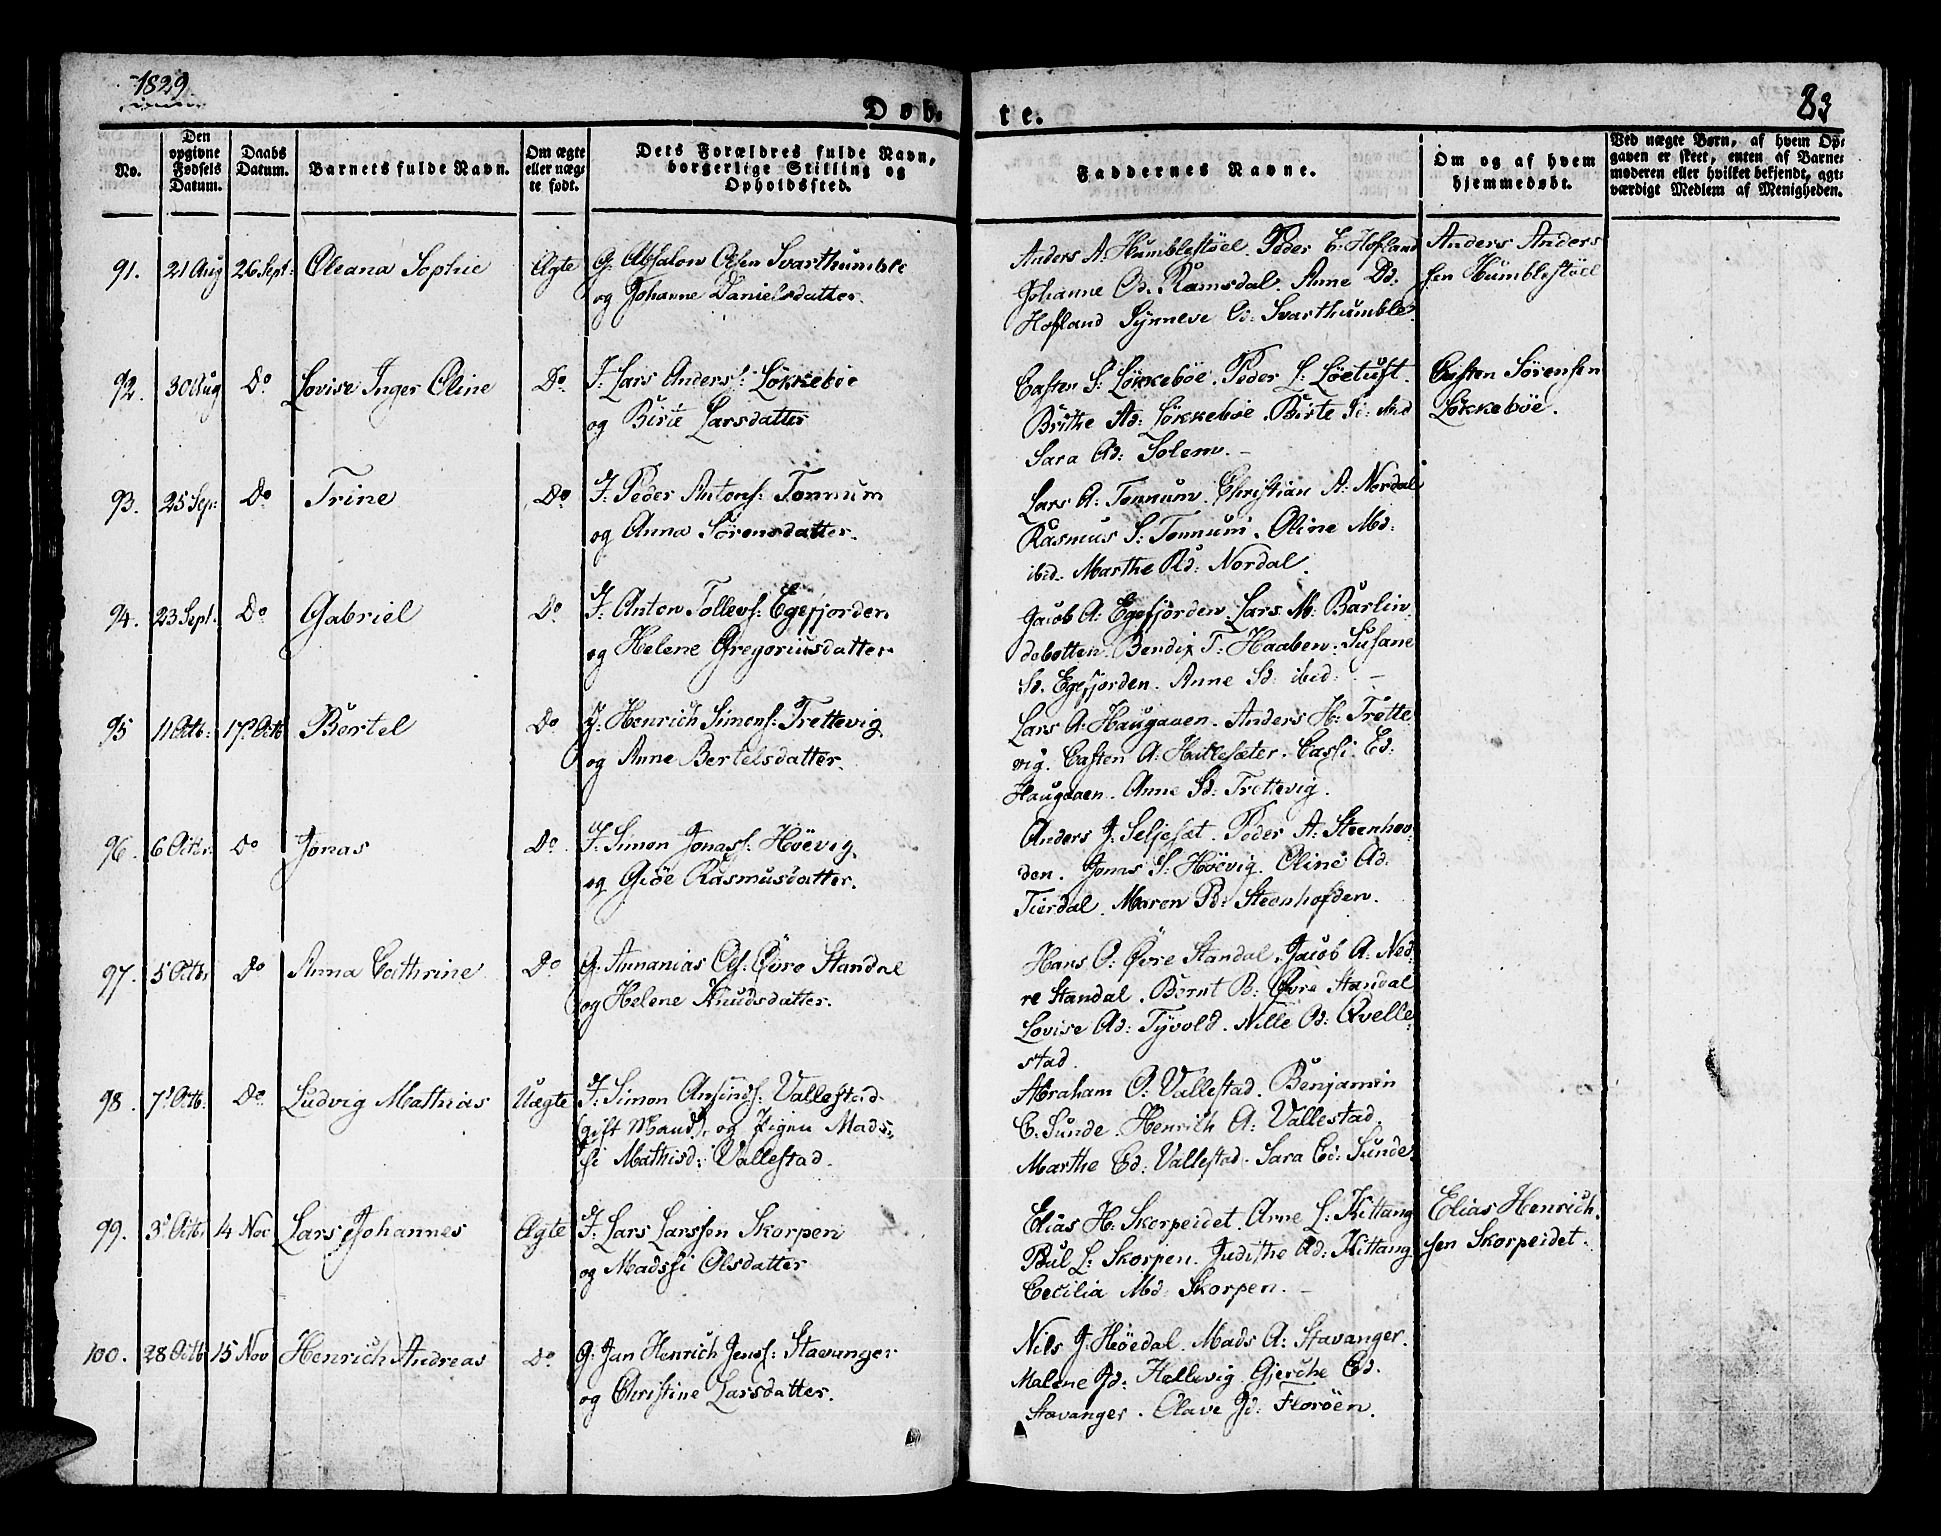 1829
83
Døb-
te.
No.
Den opgivne Fødsels Datum.
Daabs Datum.
Barnets fulde Navn.
Om ægte eller uægte født.
Dets Forældres fulde Navn, borgerlige Stilling og Opholdssted.
Faddernes Navne.
Om og af hvem hjemmedøbt.
Ved uægte Børn, af hvem Opgaven er skeet, enten af Barnemoderen eller hvilket bekjendt, agtværdigt Medlem af Menigheden.
91. 21 Aug 26 Sept: Oleana Sophie Ægte G. Absalon Olsen Svarthumble
og Johanne Danielsdatter.
Anders A: Humblestøel. Peder E: Hofland
Johanne Od. Ramsdal. Anne Dd:
Hofland Synneve Od: Svarthumble.
Anders Anders
sen Humblestøel
92. 30 Aug Do. Lovise Inger Oline Do. I: Lars Anders: Løkkebøe
og Birte Larsdatter
Casten S: Løkkebøe. Peder L: Løetuft.
Brithe Ad: Løkkebøe. Birte Sd: ibid
Sara Ad: Solem. –
Casten Sörensen
Løkkebøe.
93. 25 Sep: Do. Trine Do. I: Peder Antons: Tonnum
og Anna Sörensdatter.
Lars A: Tonnum. Christian A: Nordal
Rasmus S: Tonnum. Oline Md:
ibid. Marthe Rd: Nordal.
94. 23 Sept. Do. Gabriel Do. I: Anton Tollevs: Egefjorden
og Helene Gregoriusdatter.
Jacob A: Egefjorden. Lars M: Barlin
debotten. Bendix T: Haaben. Susane
Sd. Egefjorden. Anne Sd: ibid: –
95 11 Octb: 17 Octb Bertel Do. I: Henrich Simons: Trettevig
og Anne Bertelsdatter.
Lars A: Haugaaen. Anders H: Trette
vig. Casten A: Hatlesæter. Cassi Ed:
Haugaaen. Anne Sd: Trettevig.
96. 6 Octbr. Do Jonas Do. I: Simon Jonas: Höevig
og Giöe Rasmusdatter.
Anders J: Seljeset. Peder A: Steenhov-
den. Jonas S: Höevig. Oline Ad:
Tierdal. Maren Pd: Steenhofden.
97. 5 Octb. Do Anna Cathrine Do. G. Annanias Ols: Övre Standal
og Helene Knudsdatter.
Hans O: Övre Standal. Jacob A: Ned-
re Standal. Bernt B: Övre Standal
Lovise Ad: Tyvold. Nille Od: Qvelle-
stad.
98. 7 Octb. Do. Ludvig Mathias Uægte I: Simon Ansinds: Vallestad
(gift Mand), og Pigen Mads-
si Mathisd: Vallestad.
Abraham O: Vallestad. Benjamin
E: Sunde. Henrich A: Vallestad.
Marthe Ed: Vallestad. Sara Ed: Sunde.
99. 3 Octb. 14 Nov Lars Johannes Ægte I: Lars Larssen Skorpen
og Madssi Olsdatter
Elias H: Skorpeidet. Arne L: Kittang
Poul L: Skorpen. Judithe Ad: Kittang
Cecilia Md: Skorpen. –
Elias Henrich
sen Skorpeidet.
100. 28 Octb 15 Nov Henrich Andreas Do. G: Jan Henrich Jens: Stavanger
og Christine Larsdatter.
Nils J: Höedal. Mads A: Stavanger.
Malene Jd: Hellevig. Gjerche Ed.
Stavanger. Olave Jd: Floröen.